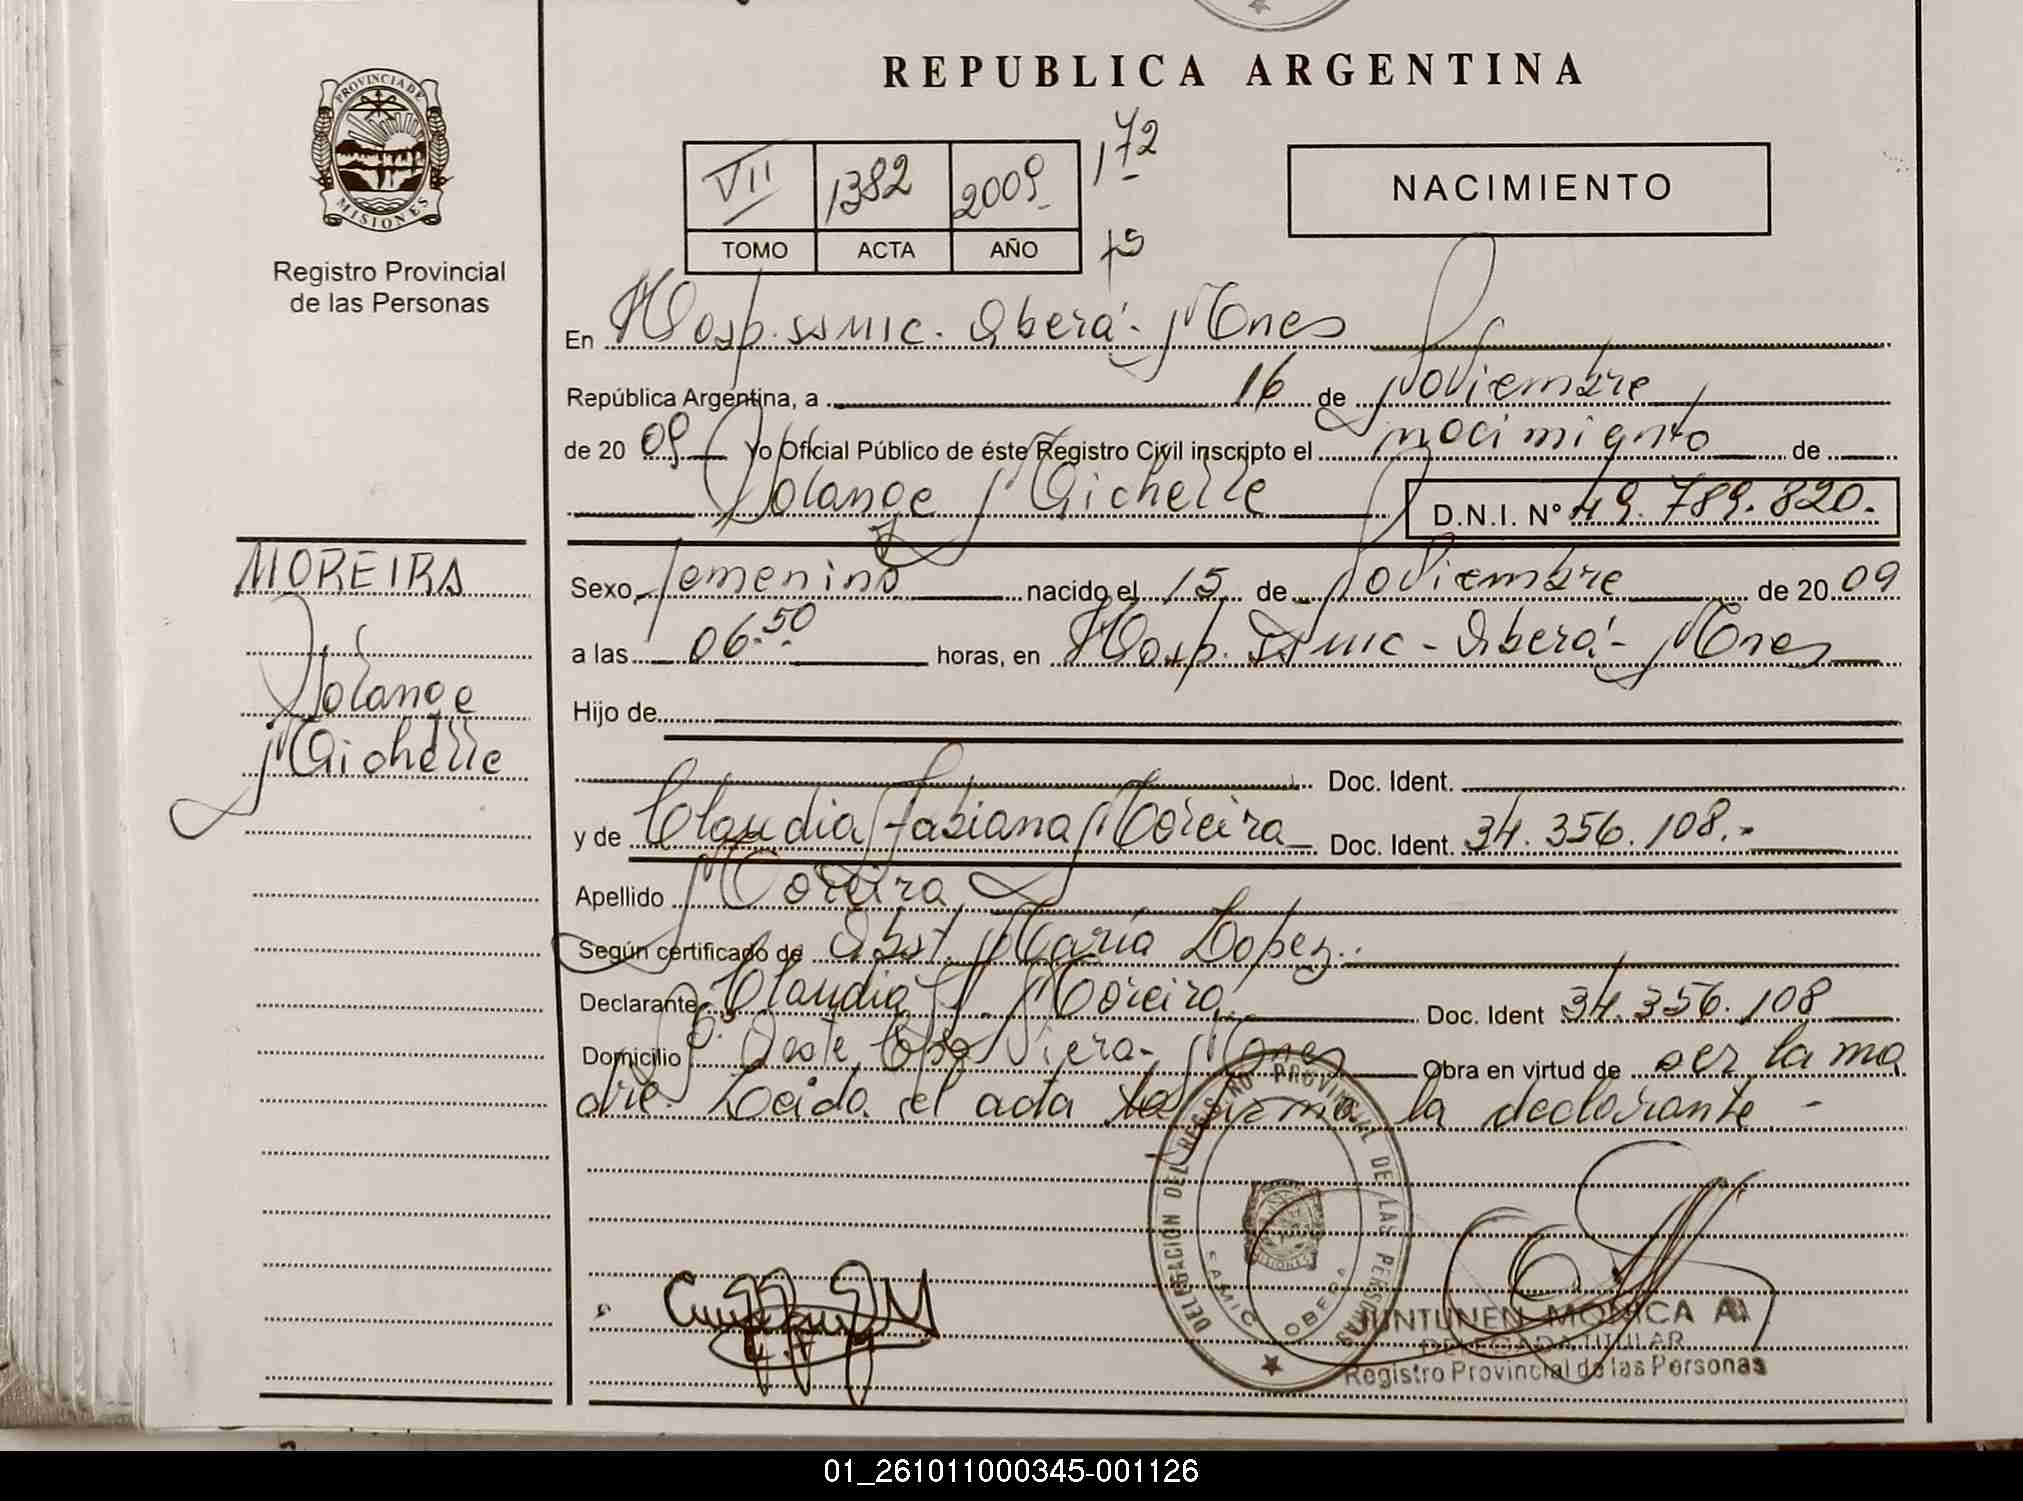 REPUBLICA ARGENTINA
PROVINCIA DE
MISIONES
Registro Provincial
de las Personas
VII 1382 2009 172
TOMO ACTA AÑO 75
NACIMIENTO
En Hosp. SSMIC. Oberá - Mnes
República Argentina, a 16 de Noviembre
de 20 09 Yo Oficial Público de éste Registro Civil inscripto el nacimiento de
Solange Michelle D.N.I. Nº 49.789.820.
MOREIRA
Solange
Michelle
Sexo femenino nacido el 15 de Noviembre de 20 09
a las 06.50 horas, en Hosp. SSMIC - Oberá - Mnes
Hijo de
Doc. Ident.
y de Claudia Fabiana Moreira Doc. Ident. 34.356.108.-
Apellido Moreira
Según certificado de Obst. María Lopez.
Declarante Claudia F. Moreira Doc. Ident 34.356.108
Domicilio Bº Oeste, Cpo Viera - Mnes Obra en virtud de ser la ma
dre. Leida el acta la firma la declarante -
DELEGACION DEL REGISTRO PROVINCIAL DE LAS PERSONAS
SAMIC OBERA
MISIONES
JUNTUNEN MONICA A.
DELEGADA TITULAR
Registro Provincial de las Personas
01_261011000345-001126